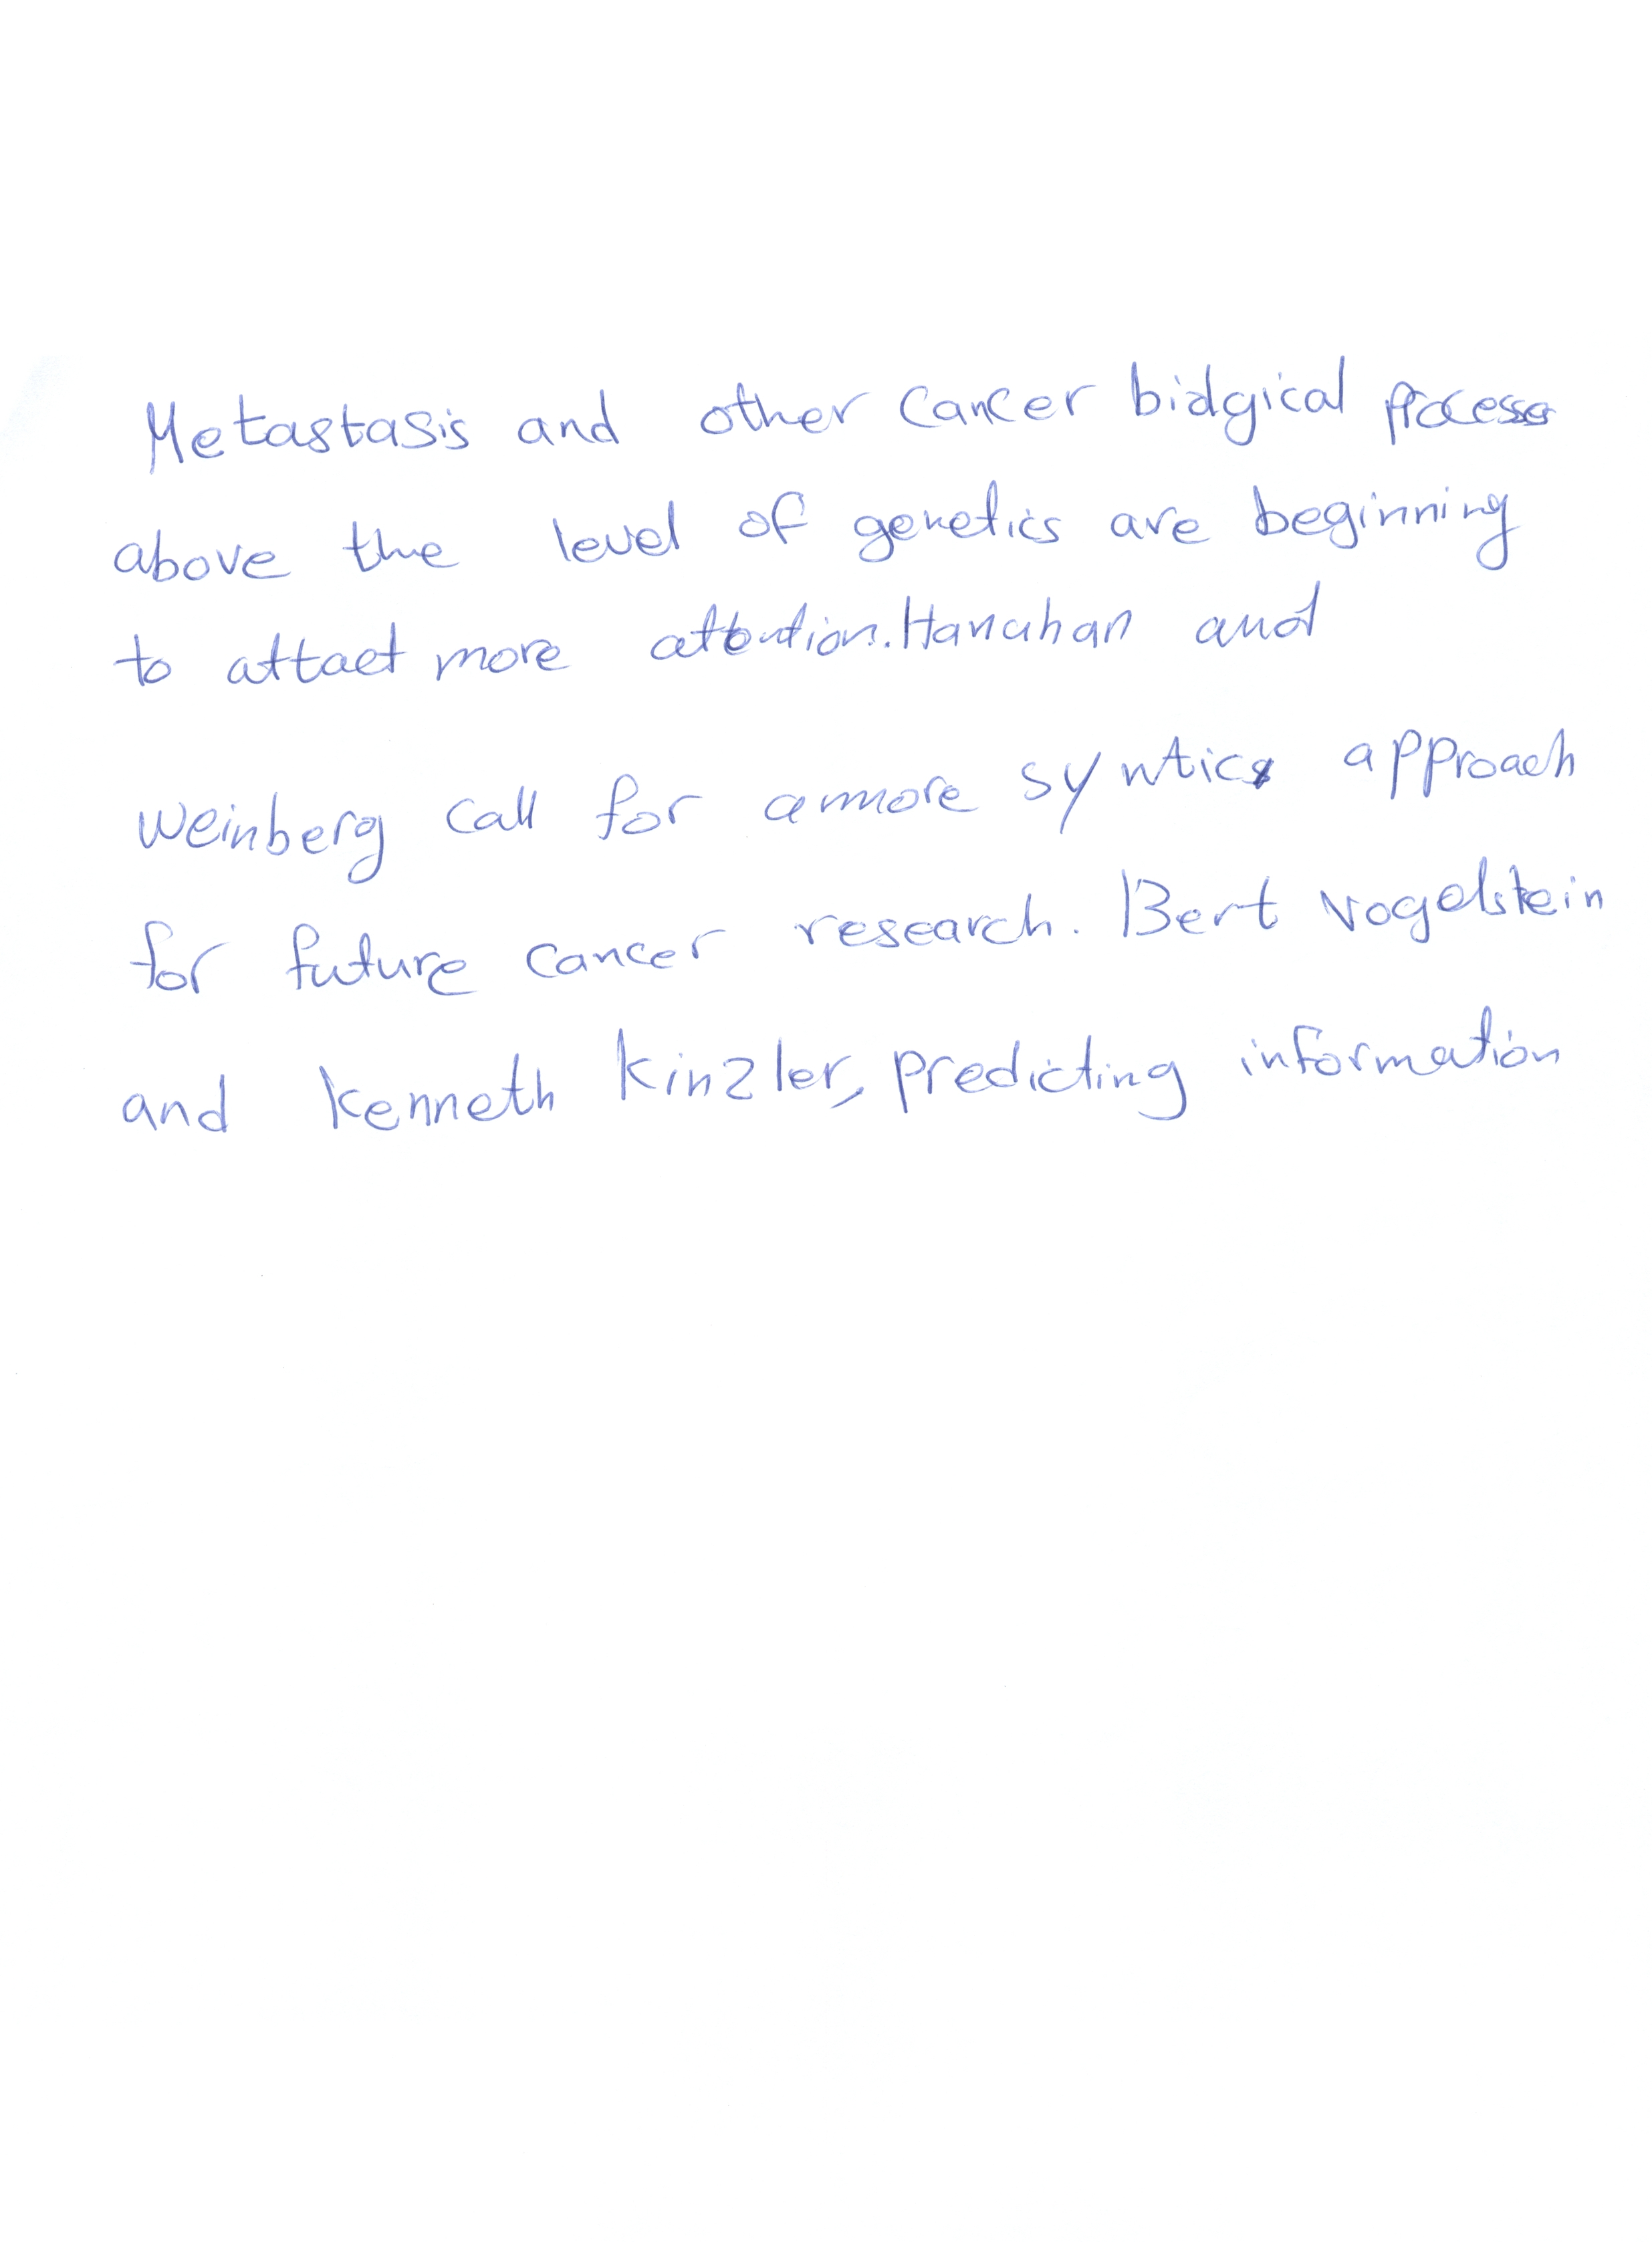 Metastasis and other cancer bidgical processe
above the level of genetics are beginning
to attact more attention. Hanahan and
Weinberg call for a more syntics approach
for future cancer research. Bert Vogelstein
and Kenneth Kinzler, predicting information